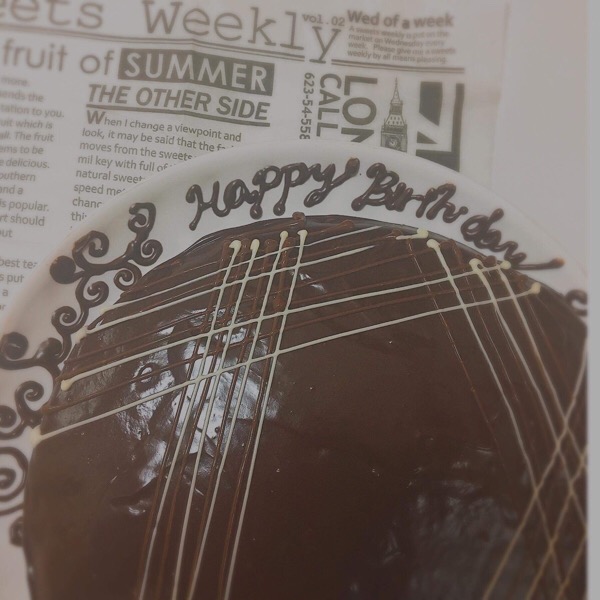 eets Weekly
vol.02
Wed of a week
fruit of SUMMER
THE OTHER SIDE
When I change a viewpoint and
look, it may be said that the
moves from the sweets
mil key with full of
natural sweet
speed
623-54-558
CALL
LON
more.
ends the
tation to you.
uit which is
all. The fruit
ems to be
e delicious.
outhern
and a
s popular.
rt should
out
best tea
s put
a
Happy Birthday